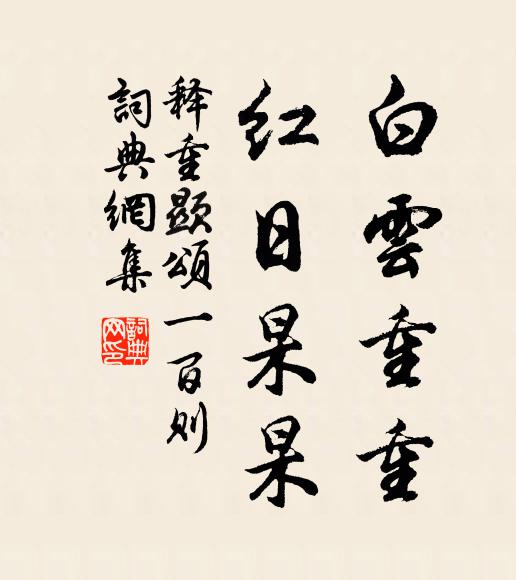 白雲重重
紅日杲杲
释重顯頌一百则
詞典網集
詞典網印